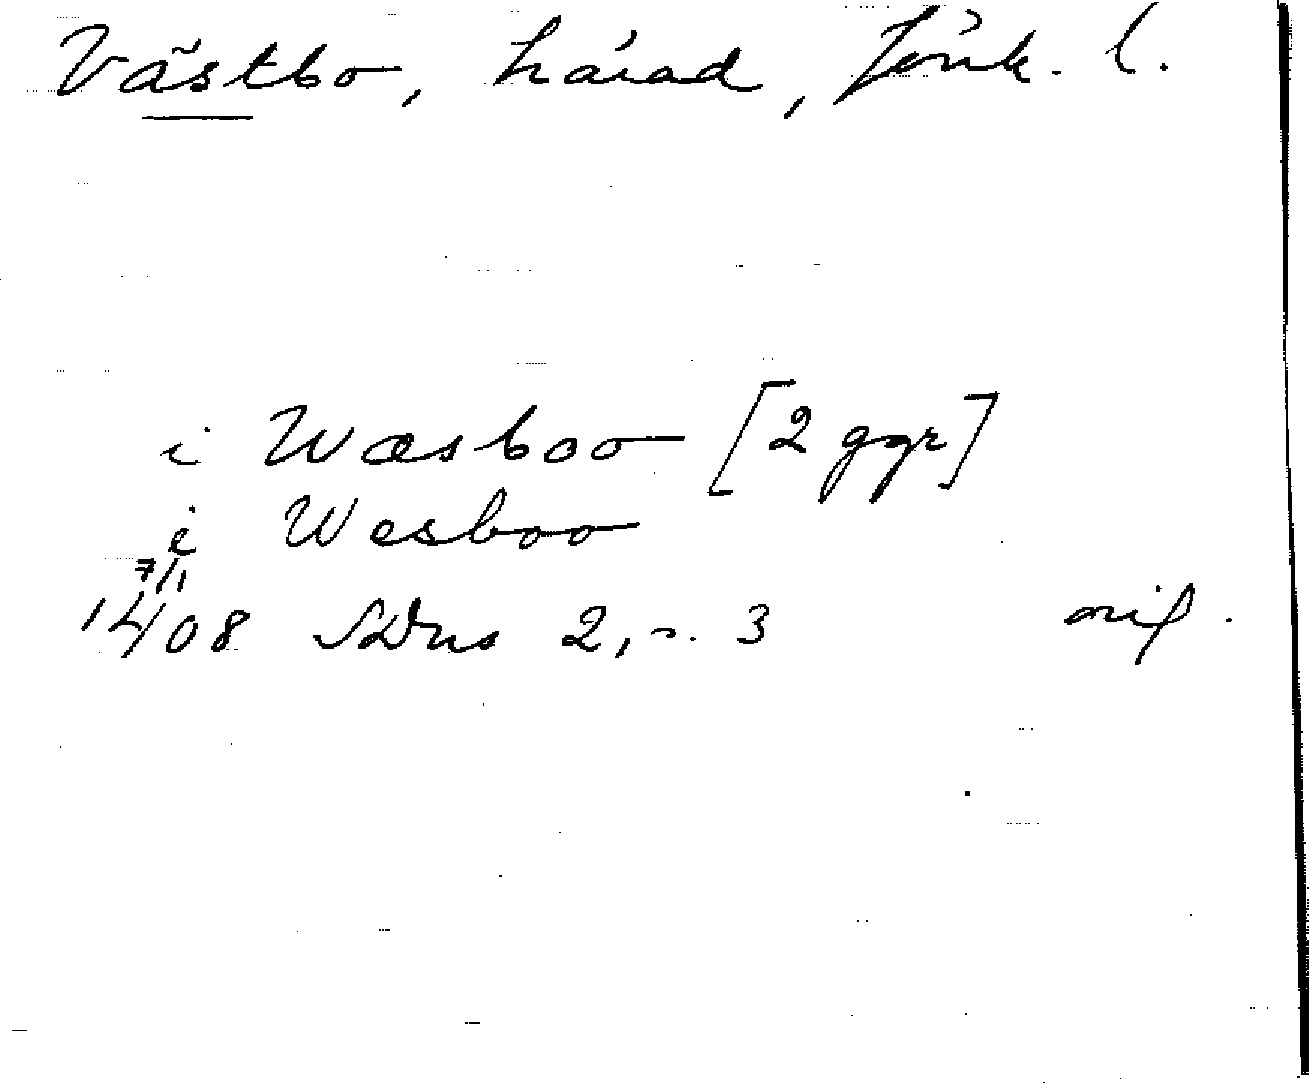 Västbo, härad, Jönk. l.
i Wæsboo [2 ggr]
i Wesboo
7/1
1408 SDns 2, s. 3 or.